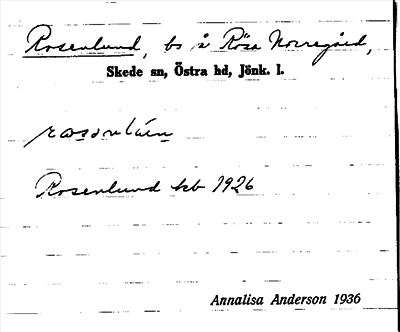 Rosenlund, bs å Rösa Norregård,
Skede sn, Östra hd, Jönk. l.
Rosenlund kb 1926
Annalisa Anderson 1936